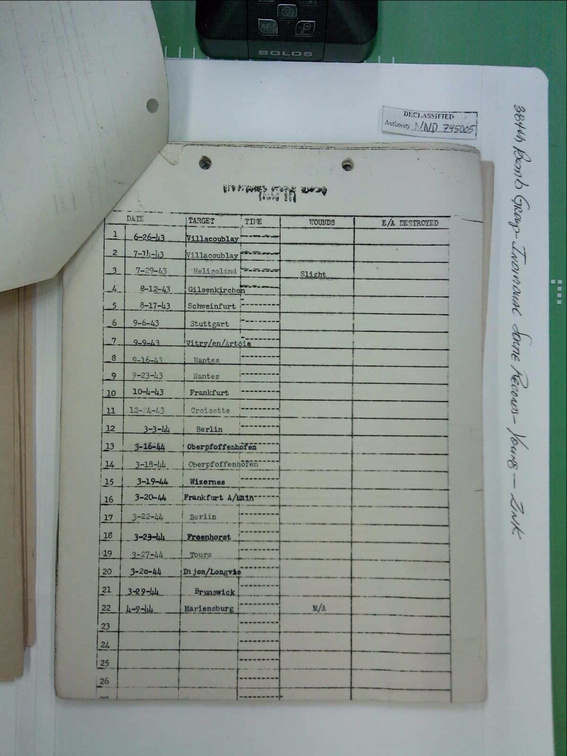 BOLDS
DECLASSIFIED
Authority NND 745005
384th Bomb Group - Individual Sortie Records - Young - Zink
DATE TARGET TIME WOUNDS E/A DESTROYED
1 6-26-43 Villacoublay
2 Villacoublay
3 7-29-43 Heligoland Slight
4 8-12-43 Gilsenkirchen
5 8-17-43 Schweinfurt
6 9-6-43 Stuttgart
7 9-9-43 Vitry/en/Artois
8 9-16-43 Nantes
9 9-23-43 Nantes
10 10-4-43 Frankfurt
11 12-24-43 Croisette
12 3-3-44 Berlin
13 3-16-44 Oberpfoffenhofen
14 3-18-44 Oberpfoffenhofen
15 3-19-44 Wizernes
16 3-20-44 Frankfurt A/Main
17 3-22-44 Berlin
18 3-23-44
19 3-27-44 Tours
20 Dijon/Longvic
21 3-29-44 Brunswick
22 4-9-44 Mariensburg M/A
23
24
25
26